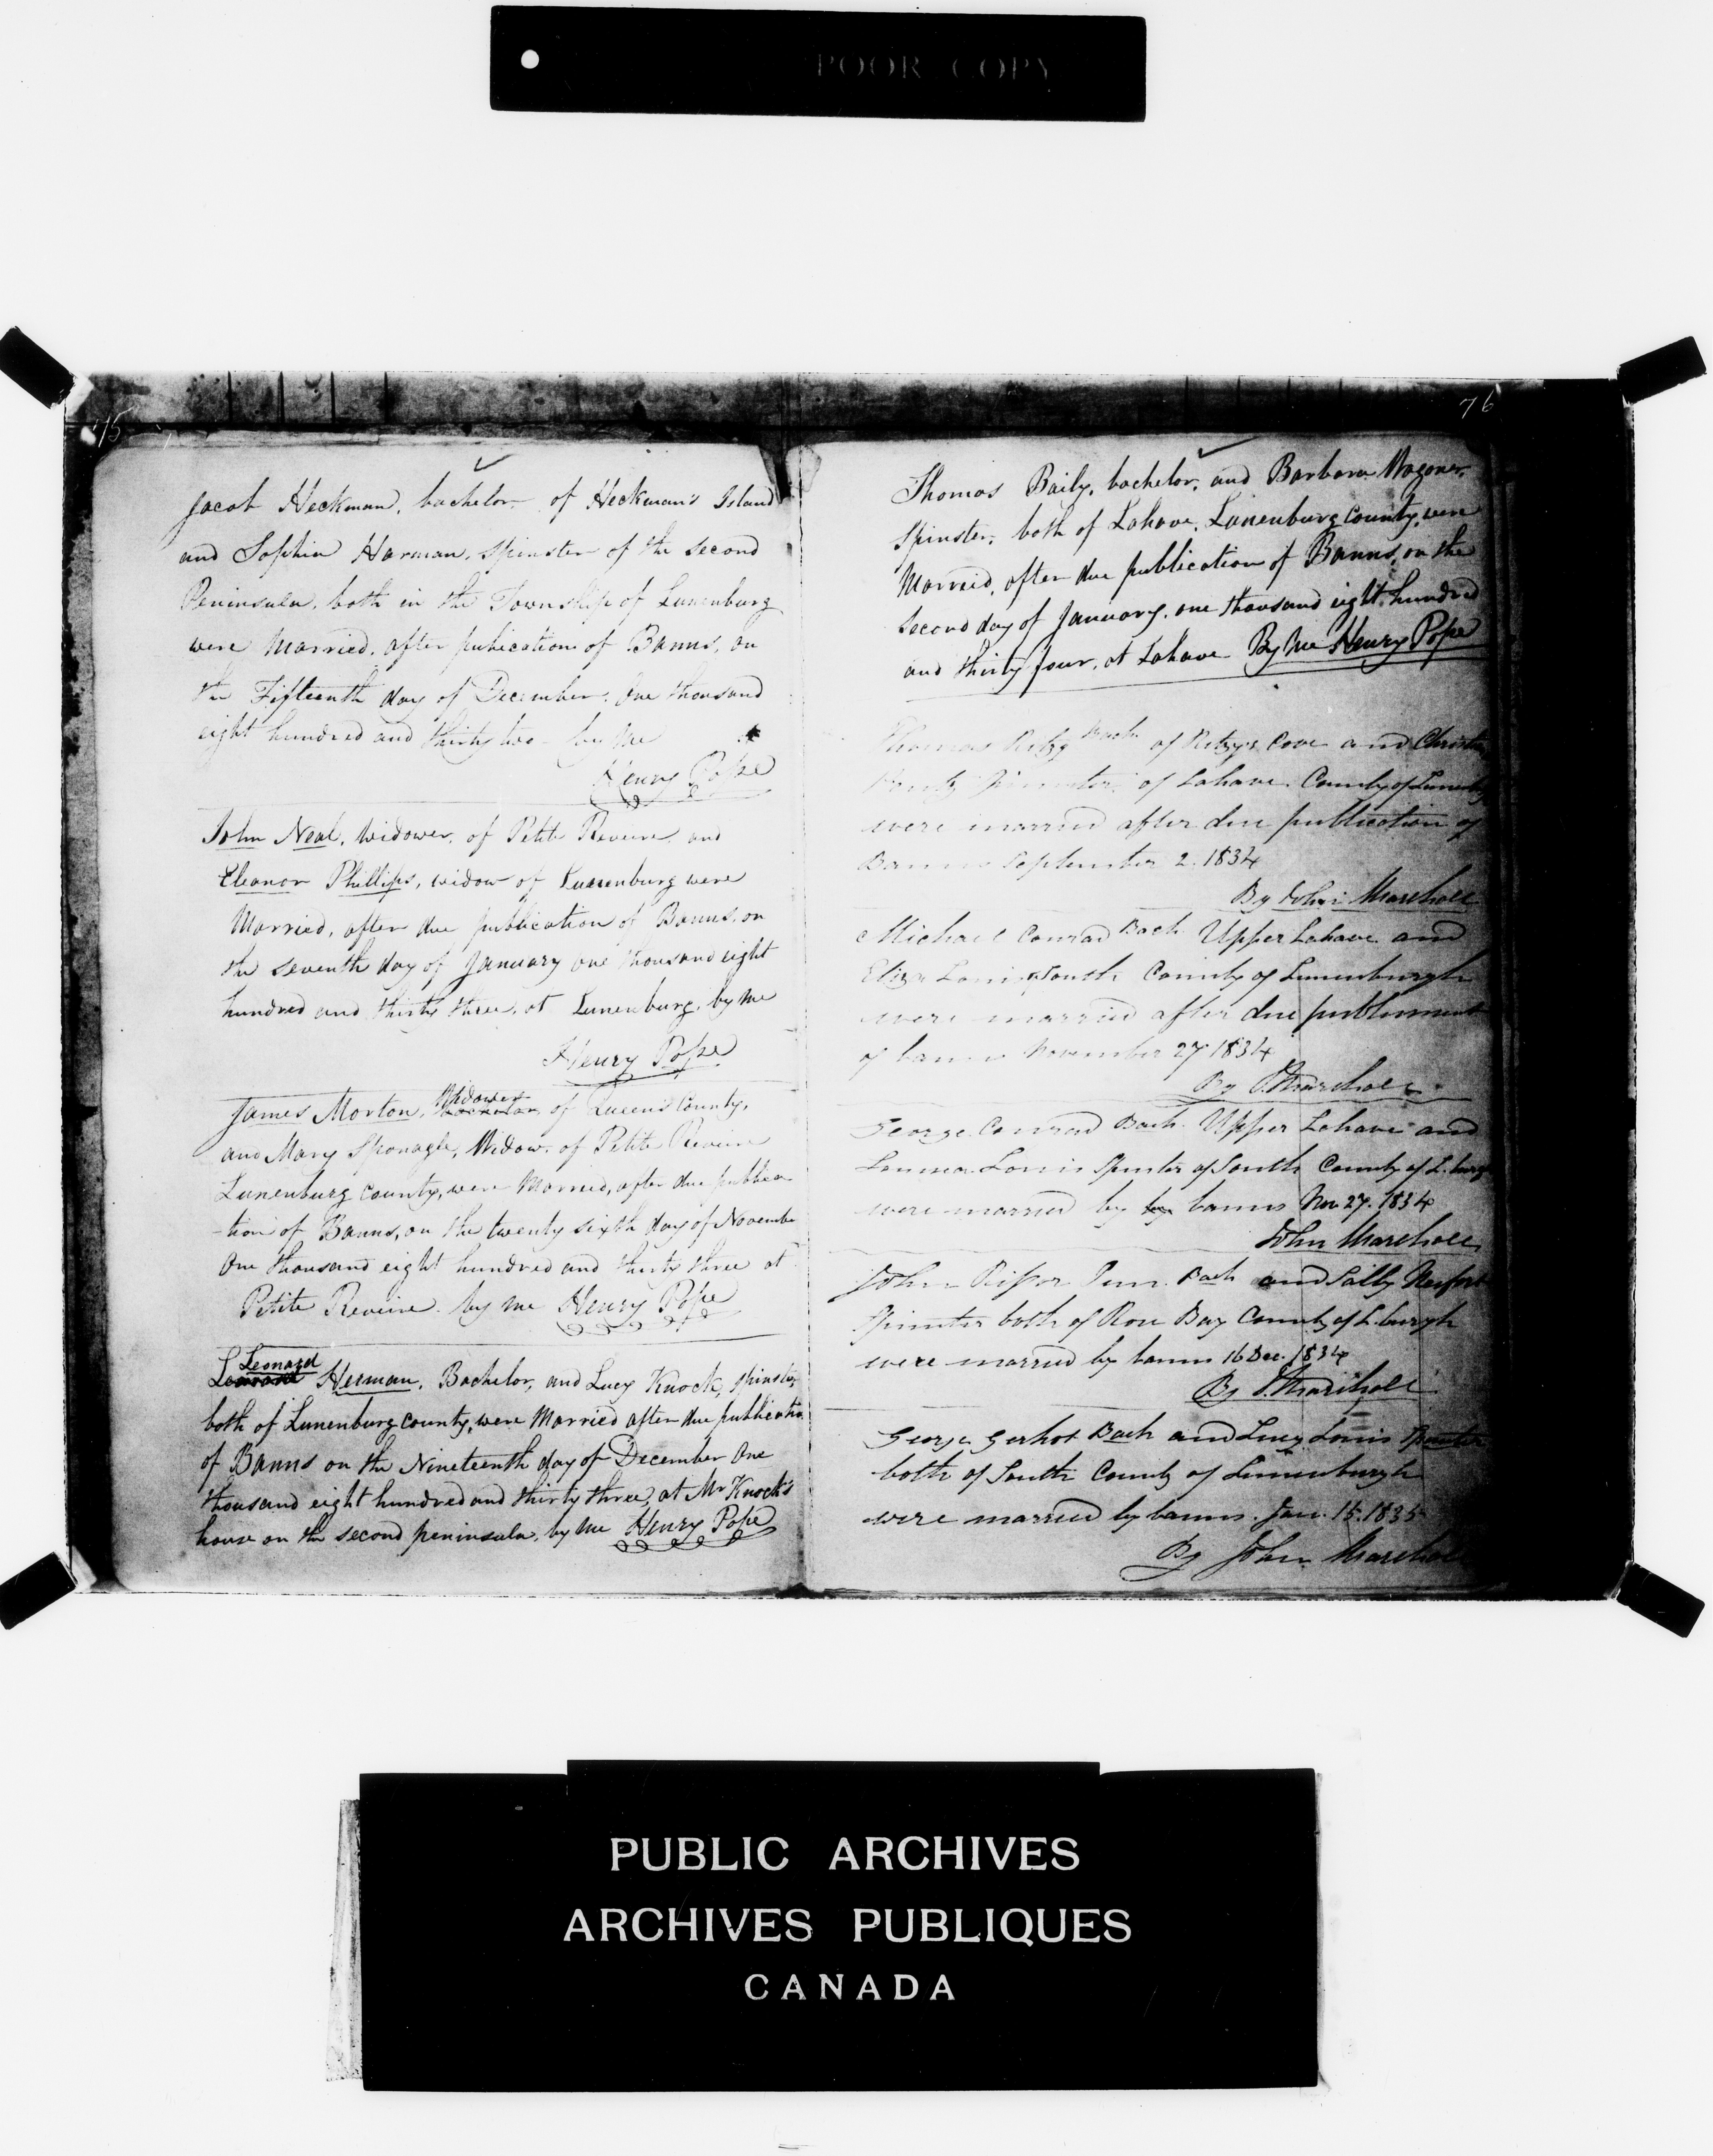 POOR COPY
75
Jacob Heckman, bachelor, of Heckman's Island
and Sophia Harman, spinster of the second
Peninsula, both in the Township of Lunenburg
were Married, after publication of Banns, on
the Fifteenth day of December, One thousand
eight hundred and thirty two by Me
Henry Pope
John Neal, Widower, of Petite Reveire and
Eleanor Phillips, widow of Lunenburg were
Married, after due publication of Banns, on
the seventh day of January one thousand eight
hundred and thirty three, at Lunenburg, by Me
Henry Pope
James Morton, Widower of Queens County,
and Mary Sponagle, Widow, of Petite Reveire
Lunenburg County, were Married, after due publica
-tion of Banns, on the twenty sixth day of Novembe
One thousand eight hundred and thirty three at
Petite Reveire by me Henry Pope
Leonard
Herman, Bachelor, and Lucy Knock, spinster,
both of Lunenburg County, were Married after due publication
of Banns on the Nineteenth day of December One
thousand eight hundred and thirty three, at Mr Knock's
house on the second peninsula, by me Henry Pope
76
Thomas Baily, bachelor, and Barbara Wagoner,
Spinster, both of Lahave, Lunenburg County, were
Married, after due publication of Banns, on the
Second day of January, one thousand eight hundred
and thirty four, at Lahave By Me Henry Pope
Thomas Ritzy Bach of Ritzy's Cove and Christin
Spinster of Lahave County of Lunenb
were married after due publication of
Banns September 2. 1834
By John Marshall
Michael Conrad Bach Upper Lahave and
Eliza South County of Lunenburgh
were married after due publishment
of banns November 27 1834
By J. Marshall
George Conrad Bach. Upper Lahave and
Spinster of South County of L.burg
were married by by banns Nov 27. 1834
John Marshall
John Jun. Bach and Sally
Spinster both of Rose Bay County of L.burgh
were married by banns 16 Dec. 1834
By J. Marshall
George Gerhot Bach and Lucy Louis Spinster
both of South County of Lunenburgh
were married by banns. Jan. 15. 1835
By John Marshall
PUBLIC ARCHIVES
ARCHIVES PUBLIQUES
CANADA